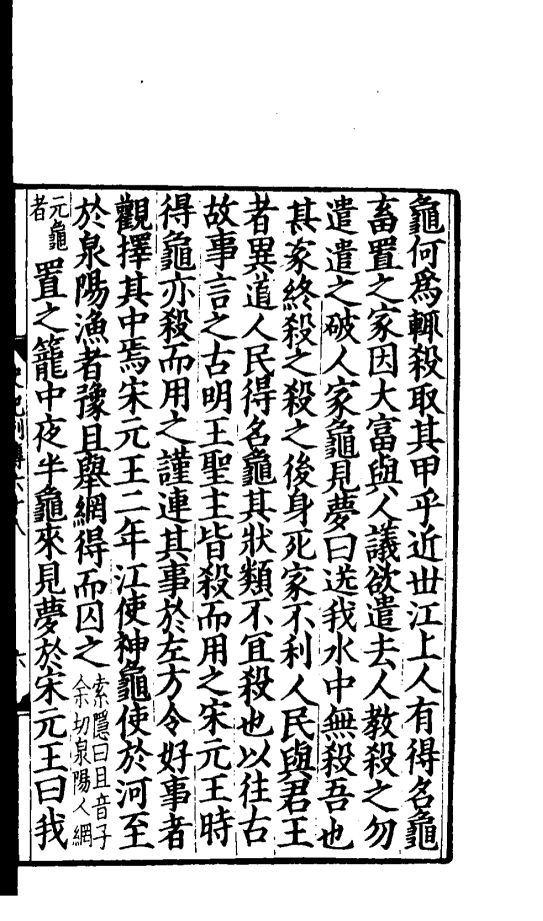 龜何爲輒殺取其甲乎近世江上人有得名龜
畜置之家因大富與人議欲遣去人教殺之勿
遣遣之破人家龜見夢曰送我水中無殺吾也
其家終殺之殺之後身死家不利人民與君王
者異道人民得名龜其狀類不冝殺也以往古
故事言之古明王聖主皆殺而用之宋元王時
得龜亦殺而用之謹連其事於左方令好事者
觀擇其中焉宋元王二年江使神龜使於河至
於泉陽漁者豫且舉網得而囚之索隱曰且音子余切泉陽人網
元龜者置之籠中夜半龜來見夢於宋元王曰我
史記列傳六十八
六